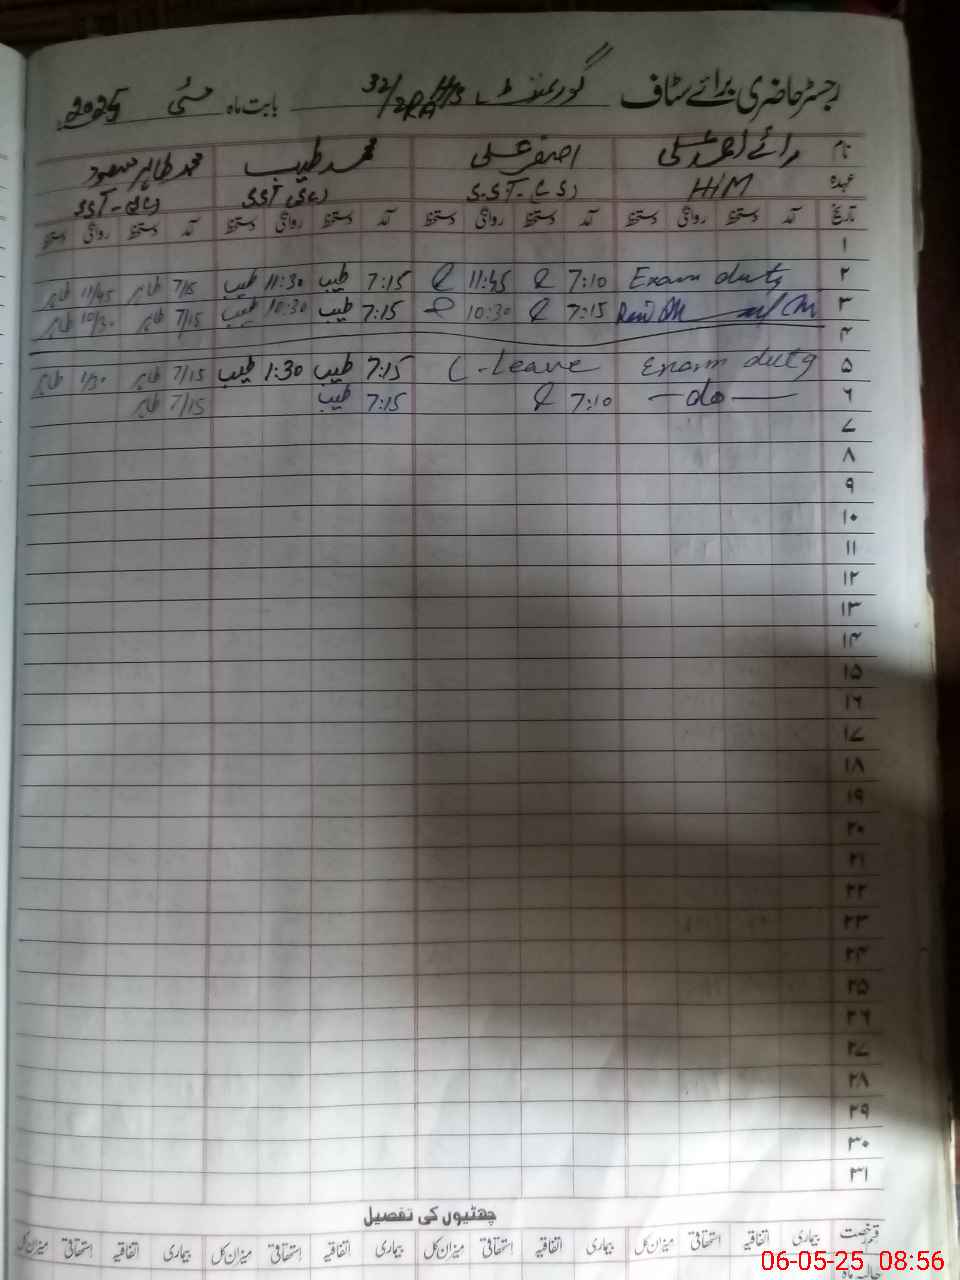 رجسٹر حاضری برائے سٹاف گورنمنٹ H/S 32/2RA بابت ماہ مئی 2025
نام رائے احمد علی اصغر علی محمد طیب محمد طاہر سعود
عہدہ H/M S.ST-(CS) SST (SC)
تاریخ آمد دستخط روانگی دستخط آمد دستخط روانگی دستخط آمد دستخط روانگی دستخط آمد دستخط روانگی دستخط
۱
۲ Exam duty 7:10 11:45 7:15 طیب 11:30 طیب 7/15 طاہر 11/45 طاہر
۳ 7:15 10:30 7:15 طیب 10:30 طیب 7/15 طاہر 10/30 طاہر
۴
۵ Exam duty C-Leave 7:15 طیب 1:30 طیب 7/15 طاہر 1/30 طاہر
۶ —do— 7:10 7:15 طیب 7/15 طاہر
۷
۸
۹
۱۰
۱۱
۱۲
۱۳
۱۴
۱۵
۱۶
۱۷
۱۸
۱۹
۲۰
۲۱
۲۲
۲۳
۲۴
۲۵
۲۶
۲۷
۲۸
۲۹
۳۰
۳۱
چھٹیوں کی تفصیل
قسم رخصت بیماری اتفاقیہ استحقاقی میزان کل بیماری اتفاقیہ استحقاقی میزان کل بیماری اتفاقیہ استحقاقی میزان کل بیماری اتفاقیہ استحقاقی میزان کل
حالیہ ماہ
06-05-25 08:56